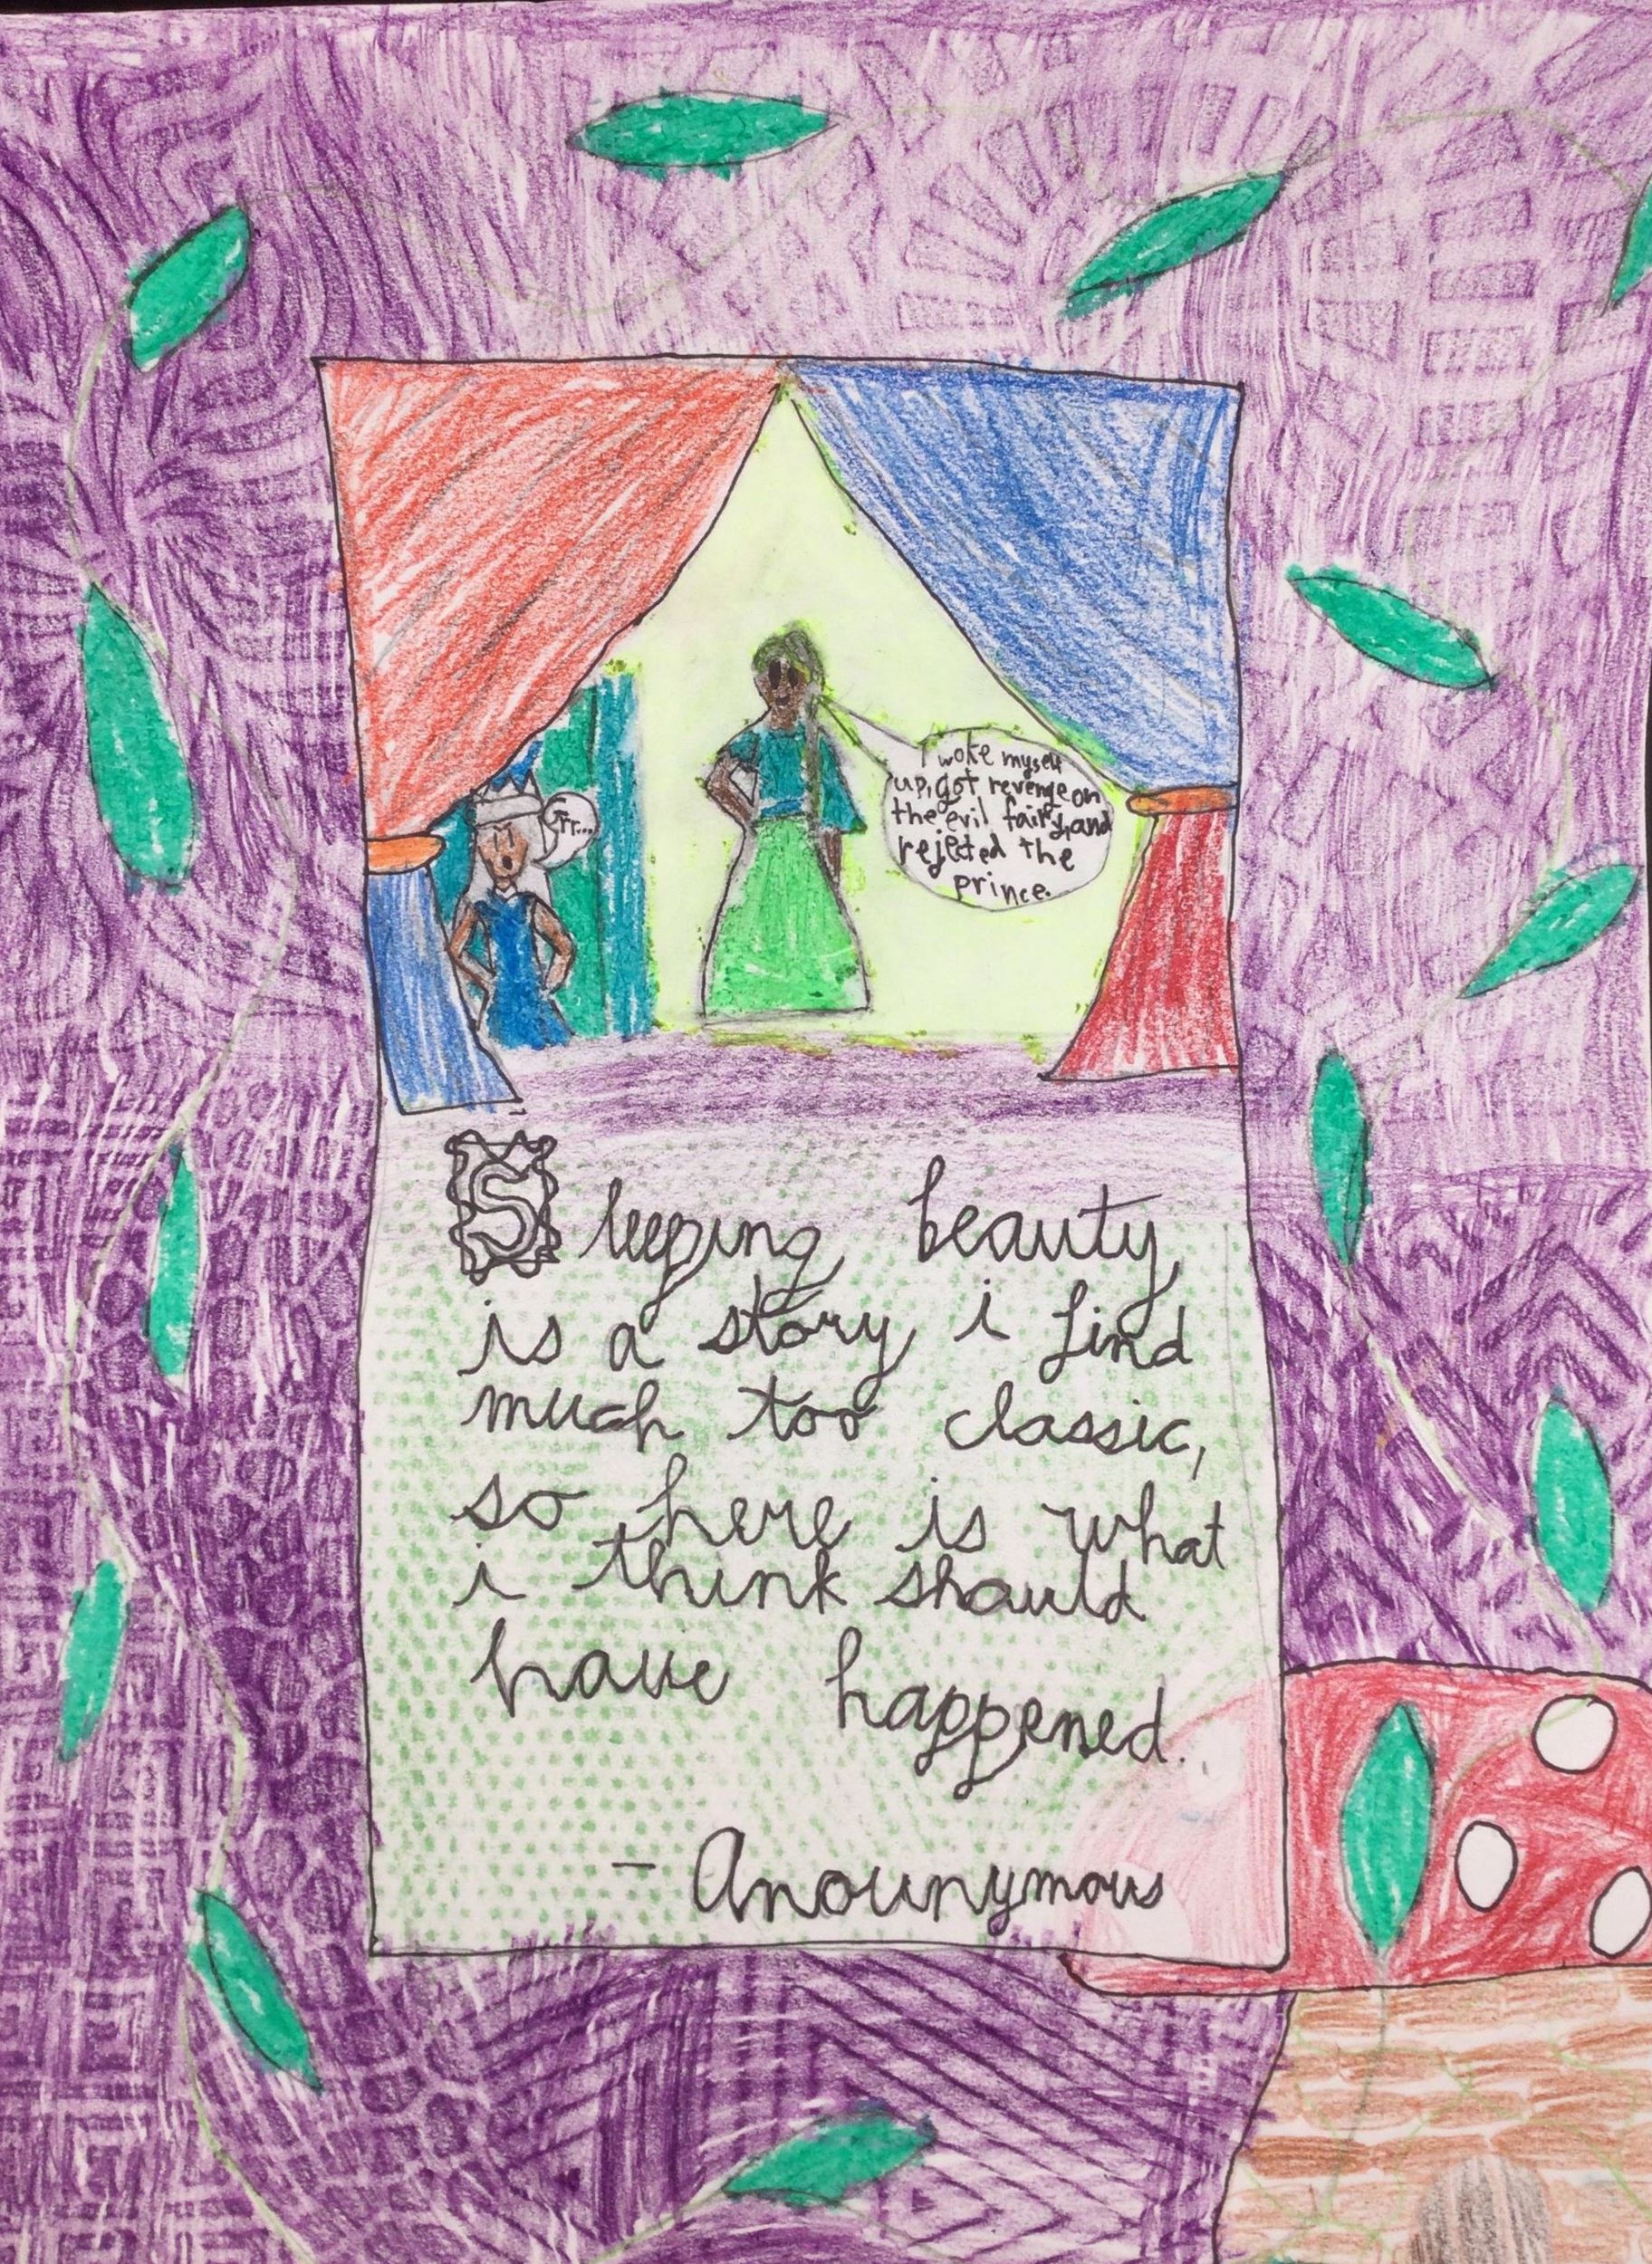 I woke myself
up, got revenge on
the evil fairy, and
rejected the
prince.
Sleeping beauty
is a story i find
much too classic,
so here is what
i think should
have happened.
- Anounymous